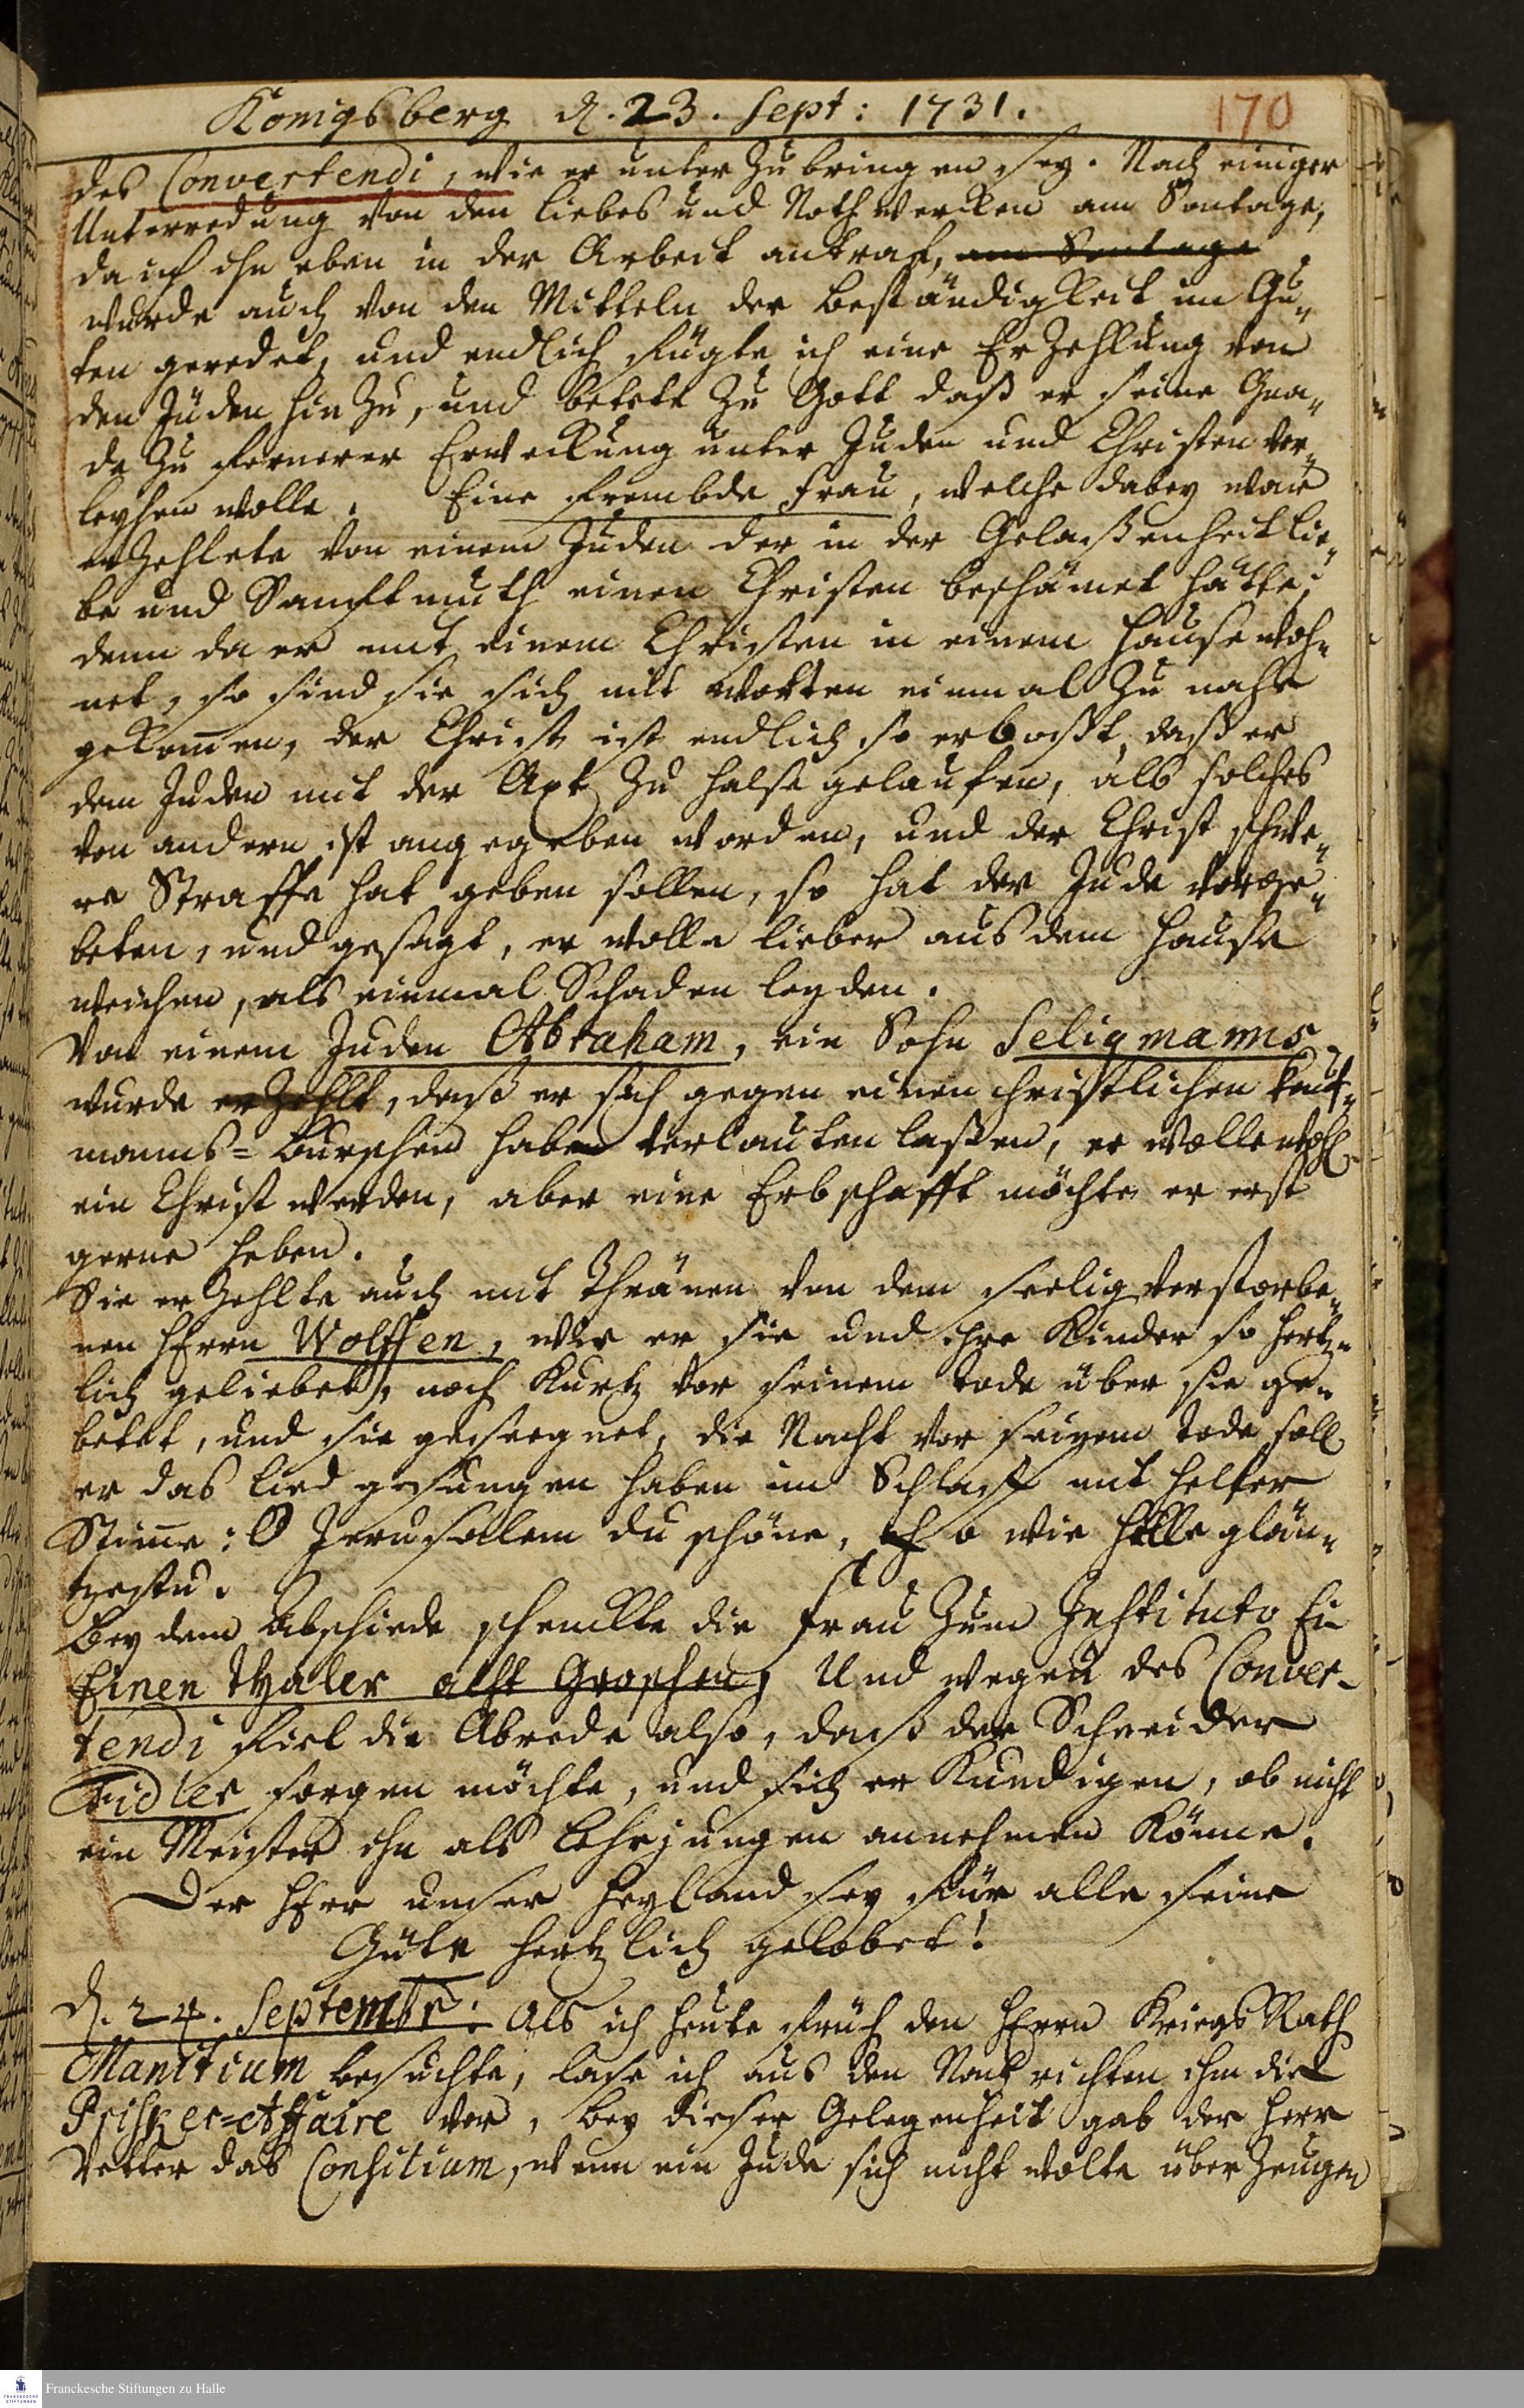 Königsberg d. 23. Sept: 1731.
170
des Convertendi, wie er unter zu bringen sey. Nach einiger
Unterredung von den Liebes und Noth wercken am Sontage,
da ich ihn eben in der Arbeit antraf, am Sontage
wurde auch von den Mitteln der Beständigkeit im Gu-
ten geredet, und endlich fügte ich eine Erzehlung von
den Jüden hinzu, und betete zu Gott daß er seine Gna-
de zu fernerer Erweckung unter Juden und Christen ver-
leyhen wolle. Eine frembde Frau, welche dabey war
erzehlete von einem Juden der in der Gelaßenheit Lie-
be und Sanftmuth einen Christen beschämet hätte;
denn da er mit einem Christen in einem Hause woh-
net, so sind sie sich mit worten einmal zu nahe
gekom̄en, der Christ ist endlich so erboßt, daß er
dem Juden mit der Axt zu halse gelaufen, als solches
von andern ist angegeben worden, und der Christ schwe-
re Straffe hat geben sollen, so hat der Jude vorge-
beten, und gesagt, er wolle lieber aus dem Hause
weichen, als einmal Schaden leyden.
Von einem Juden Abraham, ein Sohn Seligmanns
wurde erzehlt, daß er sich gegen einen christlichen Kauf-
manns-Burschen haben verlauten laßen, er wolle wohl
ein Christ werden, aber eine Erbschafft möchte er erst
gerne heben.
Sie erzehlte auch mit Thränen von dem seelig verstorbe-
nen Herrn Wolffen, wie er sie und ihre Kinder so hertz-
lich geliebet, noch kurtz vor seinem tode über sie ge-
betet, und sie geseegnet, die Nacht vor seinem tode soll
er das Lied gesungen haben im Schlaff mit heller
Stim̄e: O Jerusalem du schöne, o wie helle glän-
tzestu.
Bey dem Abschiede schenckte die Frau zum Instituto Ei
Einen thaler acht Groschen, Und wegen des Conver-
tendi fiel die Abrede also, daß der Schneider
Fidler sorgen möchte, und sich erkundigen, ob nicht
ein Meister ihn als Lehrjungen annehmen könne.
Der Herr unser Heyland sey für alle seine
Güte hertzlich gelobet!
d. 24. Septembr: Als ich heute früh den Herrn Kriegs Rath
Manitium besuchte, lase ich aus den Nachrichten ihm die
Prisker-Affaire vor, bey dieser Gelegenheit gab der Herr
Vetter das Consilium, wenn ein Jude sich nicht wolte überzeugen
Franckesche Stiftungen zu Halle